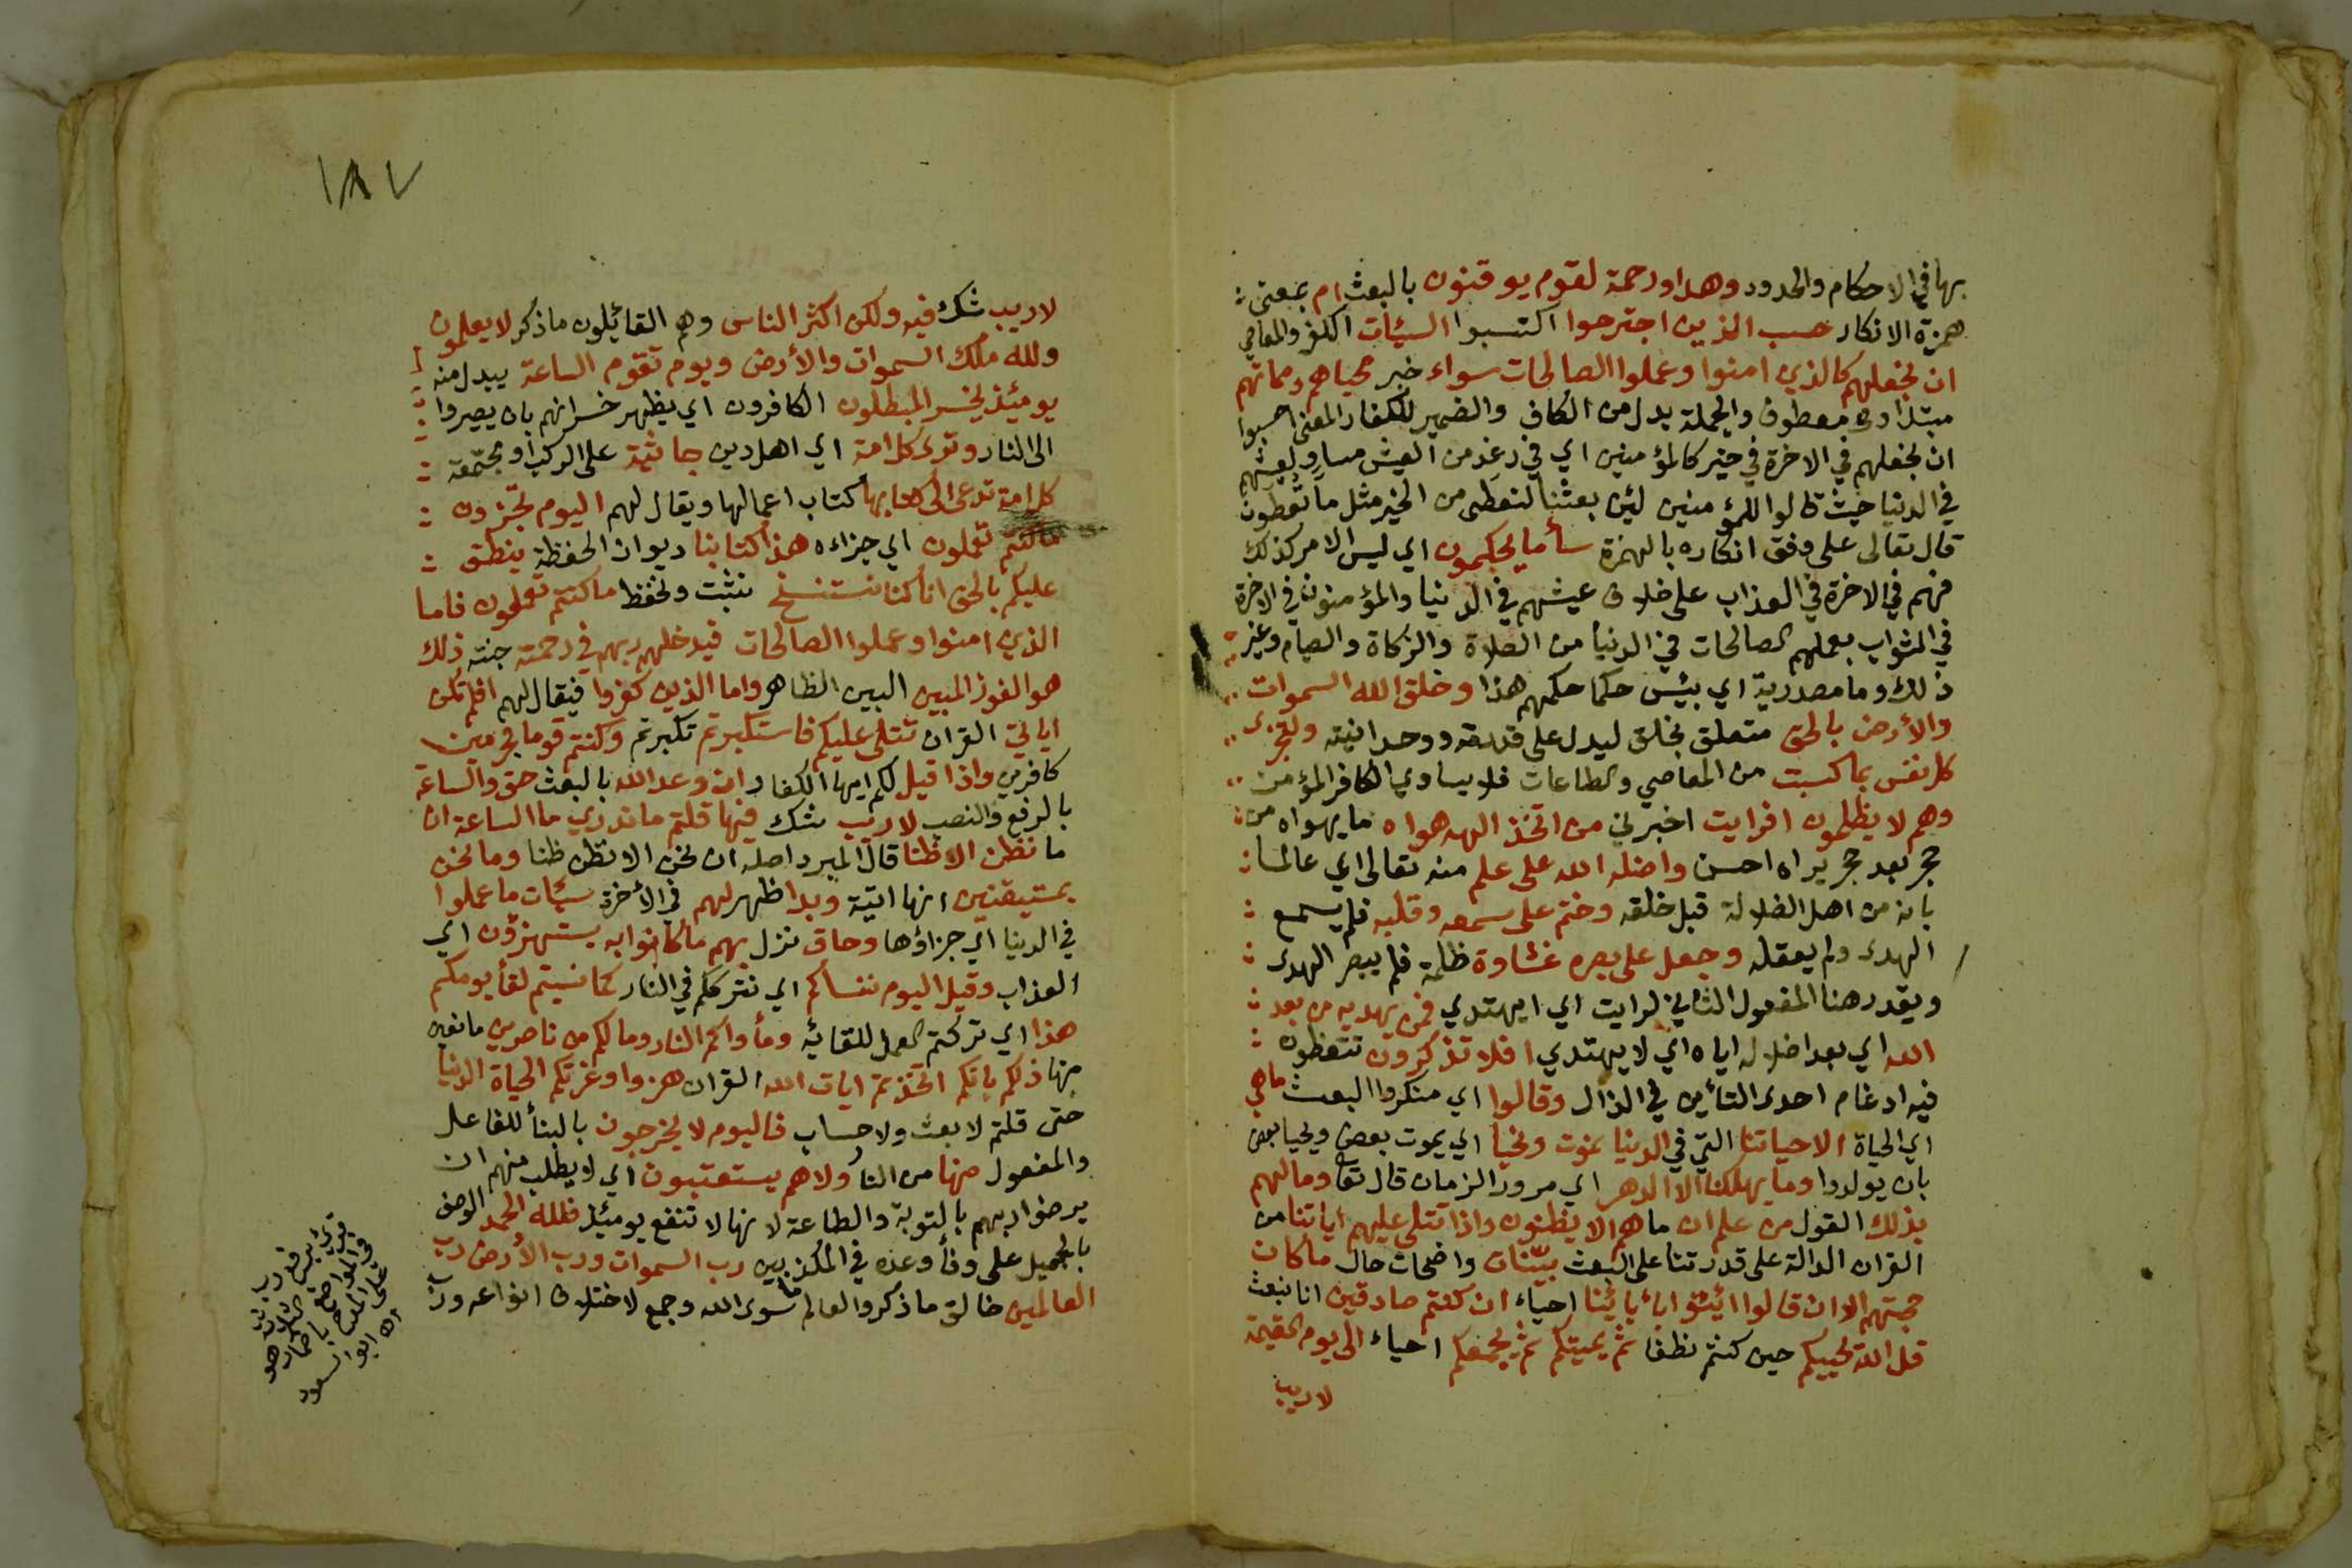 بها في الاحكام والحدود وهدا ورحمة لقوم يوقنون بالبعث ام بمعنى
همزة الانكار حسب الذين اجترحوا اكتسبوا السيئات الكفر والمعاصي
ان نجعلهم كالذين امنوا وعملوا الصالحات سواء خبر محياهم ومماتهم
مبتدا ومعطوف والجملة بدل من الكاف والضمير للكفار المعنى احسبوا
ان نجعلهم في الاخرة في خير كالمؤمنين اي في رغد من العيش مساو لعيشهم
في الدنيا حيث قالوا للمؤمنين لئن بعثنا لنعطى من الخير مثل ما تعطون
قال تعالى على وفق انكاره بالهمزة سأ ما يحكمون اي ليس الامر كذلك
فهم في الاخرة في العذاب على خلاف عيشهم في الدنيا والمؤمنون في الاخرة
في الثواب بعملهم الصالحات في الدنيا من الصلاة والزكاة والصيام وغير
ذلك وما مصدرية اي بئس حكما حكمهم هذا وخلق الله السموات
والأرض بالحق متعلق بخلق ليدل على قدرته ووحدانيته ولتجزى
كل نفس بما كسبت من المعاصي والطاعات فلا يساوي الكافر المؤمن
وهم لا يظلمون افرايت اخبرني من اتخذ الهه هواه ما يهواه من
حجر بعد حجر يراه احسن واضله الله على علم منه تعالى اي عالما
بانه من اهل الضلالة قبل خلقه وختم على سمعه وقلبه فلم يسمع
الهدى ولم يعقله وجعل على بصره غشاوة ظلمة فلم يبصر الهدى
ويقدر هنا المفعول الثاني لرايت اي ايهتدي فمن يهديه من بعد
الله اي بعد اضلاله اياه اي لا يهتدي افلا تذكرون تتعظون
فيه ادغام احدى التائين في الذال وقالوا اي منكروا البعث ما هي
اي الحياة الا حياتنا التي في الدنيا نموت ونحيا اي يموت بعض ويحيا بعض
بان يولدوا وما يهلكنا الا الدهر اي مرور الزمان قال تعا وما لهم
بذلك القول من علم ان ما هم الا يظنون واذا تتلى عليهم اياتنا من
القران الدالة على قدرتنا على البعث بيّنات واضحات حال ما كان
حجتهم الا ان قالوا ائتوا بابائنا احياء ان كنتم صادقين انا نبعث
قل الله يحييكم حين كنتم نطفا ثم يميتكم ثم يجمعكم احياء الى يوم القيمة
لا ريب
١٨٧
لا ريب شك فيه ولكن اكثر الناس وهم القائلون ما ذكر لا يعلمون
ولله ملك السموات والأرض ويوم تقوم الساعة يبدل منه
يومئذ يخسر المبطلون الكافرون اي يظهر خسرانهم بان يصيروا
الى النار وترى كل امة اي اهل دين جاثية على الركب او مجتمعة
كل امة تدعى الى كتابها كتاب اعمالها ويقال لهم اليوم تجزون
ما كنتم تعملون اي جزاءه هذا كتابنا ديوان الحفظة ينطق
عليكم بالحق انا كنا نستنسخ نثبت ونحفظ ما كنتم تعملون فاما
الذين امنوا وعملوا الصالحات فيدخلهم ربهم في رحمته جنته ذلك
هو الفوز المبين البين الظاهر واما الذين كفروا فيقال لهم افلم تكن
اياتي القران تتلى عليكم فاستكبرتم تكبرتم وكنتم قوما مجرمين
كافرين واذا قيل لكم ايها الكفار ان وعد الله بالبعث حق والساعة
بالرفع والنصب لا ريب شك فيها قلتم ما ندري ما الساعة ان
ما نظن الا ظنا قال المبرد اصله ان نحن الا نظن ظنا وما نحن
بمستيقنين انها اتية وبدا ظهر لهم في الأخرة سيئات ما عملوا
في الدنيا اي جزاؤها وحاق نزل بهم ما كانوا به يستهزؤن اي
العذاب وقيل اليوم ننساكم اي نتركم في النار كما نسيتم لقأ يومكم
هذا اي تركتم العمل للقائه ومأواكم النار وما لكم من ناصرين مانعين
منها ذلكم بانكم اتخذتم ايات الله القران هزوا وغرتكم الحياة الدنيا
حتى قلتم لا بعث ولا حساب فاليوم لا يخرجون بالبنأ للفاعل
والمفعول منها من النار ولا هم يستعتبون اي لا يطلب منهم ان
يرضوا ربهم بالتوبة والطاعة لانها لا تنفع يومئذ فلله الحمد الوصف
بالجميل على وفأ وعده في المكذبين رب السموات ورب الأرض رب
العالمين خالق ما ذكر والعالم ما سوى الله وجمع لاختلاف انواعه ورب
قرئ برفع رب
في المواضع الثلاثة
على المدح باضمار هو
اه ابو السعود